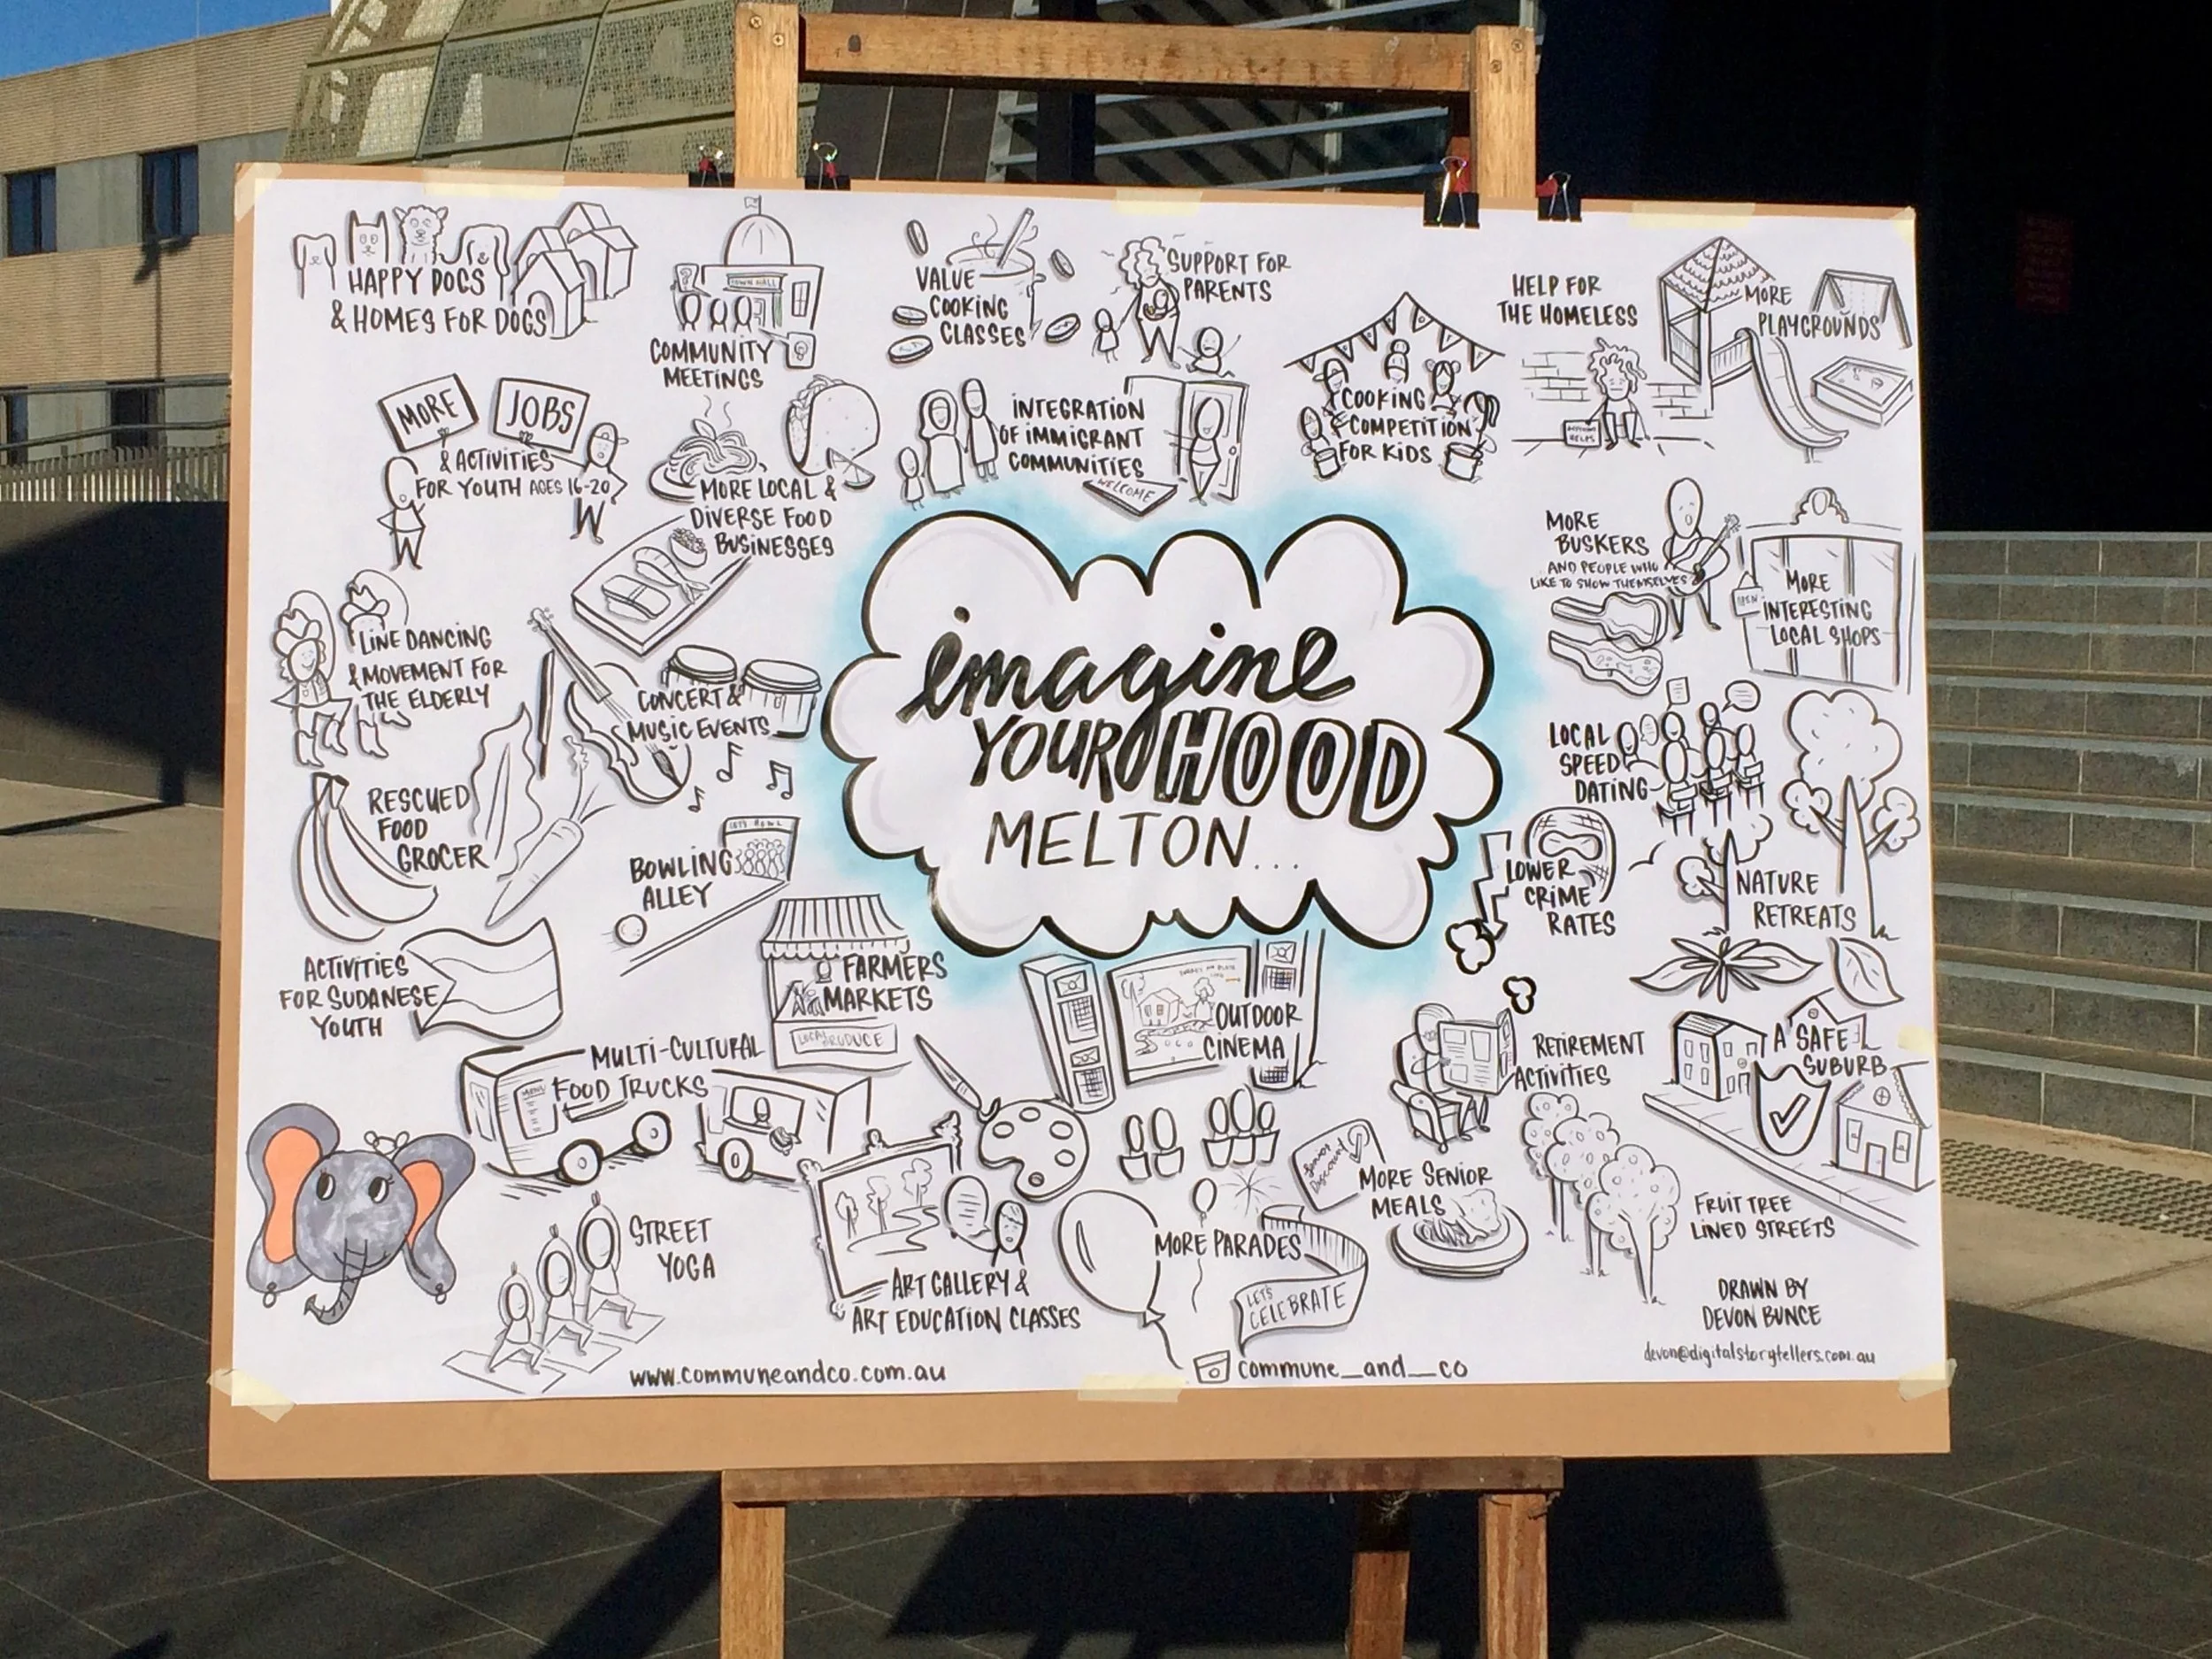 HAPPY DOGS
& HOMES FOR DOGS
TOWN HALL
COMMUNITY
MEETINGS
VALUE
COOKING
CLASSES
SUPPORT FOR
PARENTS
HELP FOR
THE HOMELESS
MORE
PLAYGROUNDS
MORE
JOBS
& ACTIVITIES
FOR YOUTH AGES 16-20
MORE LOCAL &
DIVERSE FOOD
BUSINESSES
INTEGRATION
OF IMMIGRANT
COMMUNITIES
WELCOME
COOKING
COMPETITION
FOR KIDS
ANYTHING
HELPS
MORE
BUSKERS
AND PEOPLE WHO
LIKE TO SHOW THEMSELVES
OPEN
MORE
INTERESTING
LOCAL SHOPS
LINE DANCING
& MOVEMENT FOR
THE ELDERLY
CONCERT &
MUSIC EVENTS
imagine
YOUR HOOD
MELTON...
LOCAL
SPEED
DATING
RESCUED
FOOD
GROCER
LET'S BOWL
BOWLING
ALLEY
LOWER
CRIME
RATES
NATURE
RETREATS
ACTIVITIES
FOR SUDANESE
YOUTH
FARMERS
MARKETS
LOCAL PRODUCE
OUTDOOR
CINEMA
RETIREMENT
ACTIVITIES
A SAFE
SUBURB
MULTI-CULTURAL
FOOD TRUCKS
MENU
STREET
YOGA
ART GALLERY &
ART EDUCATION CLASSES
MORE PARADES
LET'S
CELEBRATE
Senior
Discount
MORE SENIOR
MEALS
FRUIT TREE
LINED STREETS
DRAWN BY
DEVON BUNCE
devon@digitalstorytellers.com.au
www.communeandco.com.au
commune_and_co